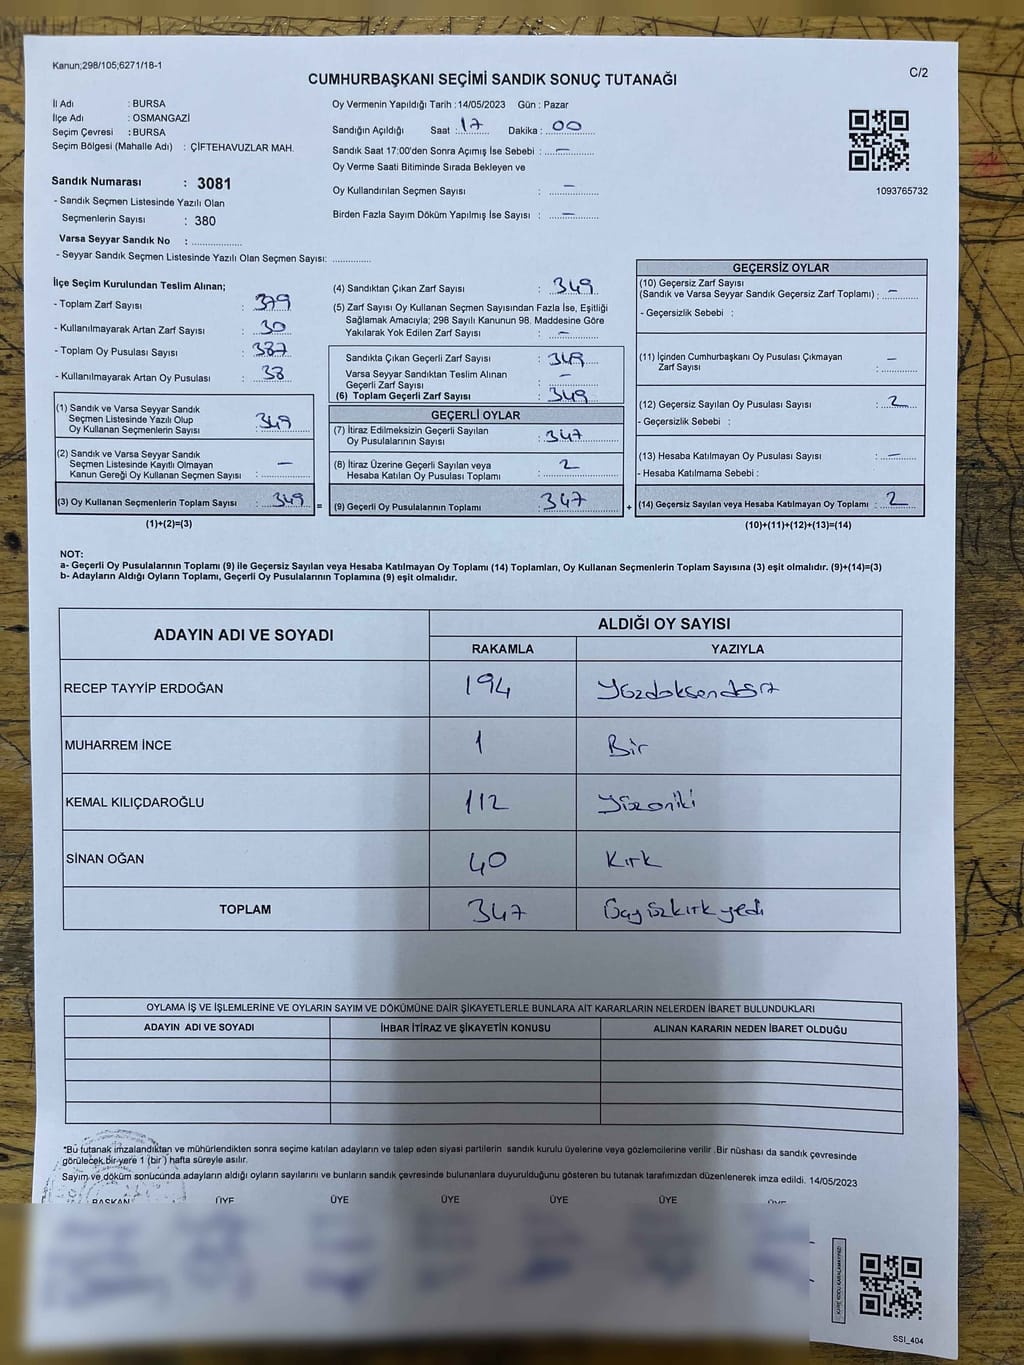 Kanun;298/105;6271/18-1
C/2
CUMHURBAŞKANI SEÇİMİ SANDIK SONUÇ TUTANAĞI
İl Adı : BURSA
İlçe Adı : OSMANGAZİ
Seçim Çevresi : BURSA
Seçim Bölgesi (Mahalle Adı) : ÇİFTEHAVUZLAR MAH.
Sandık Numarası : 3081
- Sandık Seçmen Listesinde Yazılı Olan
Seçmenlerin Sayısı : 380
Varsa Seyyar Sandık No : ....................
- Seyyar Sandık Seçmen Listesinde Yazılı Olan Seçmen Sayısı: ...............
Oy Vermenin Yapıldığı Tarih : 14/05/2023 Gün : Pazar
Sandığın Açıldığı Saat : 17 Dakika : 00
Sandık Saat 17:00'den Sonra Açımış İse Sebebi : —
Oy Verme Saati Bitiminde Sırada Bekleyen ve
Oy Kullandırılan Seçmen Sayısı : —
Birden Fazla Sayım Döküm Yapılmış İse Sayısı : —
1093765732
İlçe Seçim Kurulundan Teslim Alınan;
- Toplam Zarf Sayısı : 379
- Kullanılmayarak Artan Zarf Sayısı : 30
- Toplam Oy Pusulası Sayısı : 387
- Kullanılmayarak Artan Oy Pusulası : 38
(1) Sandık ve Varsa Seyyar Sandık
Seçmen Listesinde Yazılı Olup
Oy Kullanan Seçmenlerin Sayısı : 349
(2) Sandık ve Varsa Seyyar Sandık
Seçmen Listesinde Kayıtlı Olmayan
Kanun Gereği Oy Kullanan Seçmen Sayısı : —
(3) Oy Kullanan Seçmenlerin Toplam Sayısı : 349 =
(1)+(2)=(3)
(4) Sandıktan Çıkan Zarf Sayısı : 349
(5) Zarf Sayısı Oy Kullanan Seçmen Sayısından Fazla İse, Eşitliği
Sağlamak Amacıyla; 298 Sayılı Kanunun 98. Maddesine Göre
Yakılarak Yok Edilen Zarf Sayısı : —
Sandıkta Çıkan Geçerli Zarf Sayısı : 349
Varsa Seyyar Sandıktan Teslim Alınan
Geçerli Zarf Sayısı : —
(6) Toplam Geçerli Zarf Sayısı : 349
GEÇERLİ OYLAR
(7) İtiraz Edilmeksizin Geçerli Sayılan
Oy Pusulalarının Sayısı : 347
(8) İtiraz Üzerine Geçerli Sayılan veya
Hesaba Katılan Oy Pusulası Toplamı : 2
(9) Geçerli Oy Pusulalarının Toplamı : 347 +
GEÇERSİZ OYLAR
(10) Geçersiz Zarf Sayısı
(Sandık ve Varsa Seyyar Sandık Geçersiz Zarf Toplamı) : —
- Geçersizlik Sebebi :
(11) İçinden Cumhurbaşkanı Oy Pusulası Çıkmayan
Zarf Sayısı : —
(12) Geçersiz Sayılan Oy Pusulası Sayısı : 2
- Geçersizlik Sebebi :
(13) Hesaba Katılmayan Oy Pusulası Sayısı : —
- Hesaba Katılmama Sebebi :
(14) Geçersiz Sayılan veya Hesaba Katılmayan Oy Toplamı : 2
(10)+(11)+(12)+(13)=(14)
NOT:
a- Geçerli Oy Pusulalarının Toplamı (9) ile Geçersiz Sayılan veya Hesaba Katılmayan Oy Toplamı (14) Toplamları, Oy Kullanan Seçmenlerin Toplam Sayısına (3) eşit olmalıdır. (9)+(14)=(3)
b- Adayların Aldığı Oyların Toplamı, Geçerli Oy Pusulalarının Toplamına (9) eşit olmalıdır.
ADAYIN ADI VE SOYADI ALDIĞI OY SAYISI
RAKAMLA YAZIYLA
RECEP TAYYİP ERDOĞAN 194 Yüzdoksendört
MUHARREM İNCE 1 Bir
KEMAL KILIÇDAROĞLU 112 Yüzoniki
SİNAN OĞAN 40 Kırk
TOPLAM 347 Üçyüzkırkyedi
OYLAMA İŞ VE İŞLEMLERİNE VE OYLARIN SAYIM VE DÖKÜMÜNE DAİR ŞİKAYETLERLE BUNLARA AİT KARARLARIN NELERDEN İBARET BULUNDUKLARI
ADAYIN ADI VE SOYADI İHBAR İTİRAZ VE ŞİKAYETİN KONUSU ALINAN KARARIN NEDEN İBARET OLDUĞU
*Bu tutanak imzalandıktan ve mühürlendikten sonra seçime katılan adayların ve talep eden siyasi partilerin sandık kurulu üyelerine veya gözlemcilerine verilir .Bir nüshası da sandık çevresinde
görülecek bir yere 1 (bir ) hafta süreyle asılır.
Sayım ve döküm sonucunda adayların aldığı oyların sayılarını ve bunların sandık çevresinde bulunanlara duyurulduğunu gösteren bu tutanak tarafımızdan düzenlenerek imza edildi. 14/05/2023
BAŞKAN ÜYE ÜYE ÜYE ÜYE ÜYE ÜYE
SSI_404